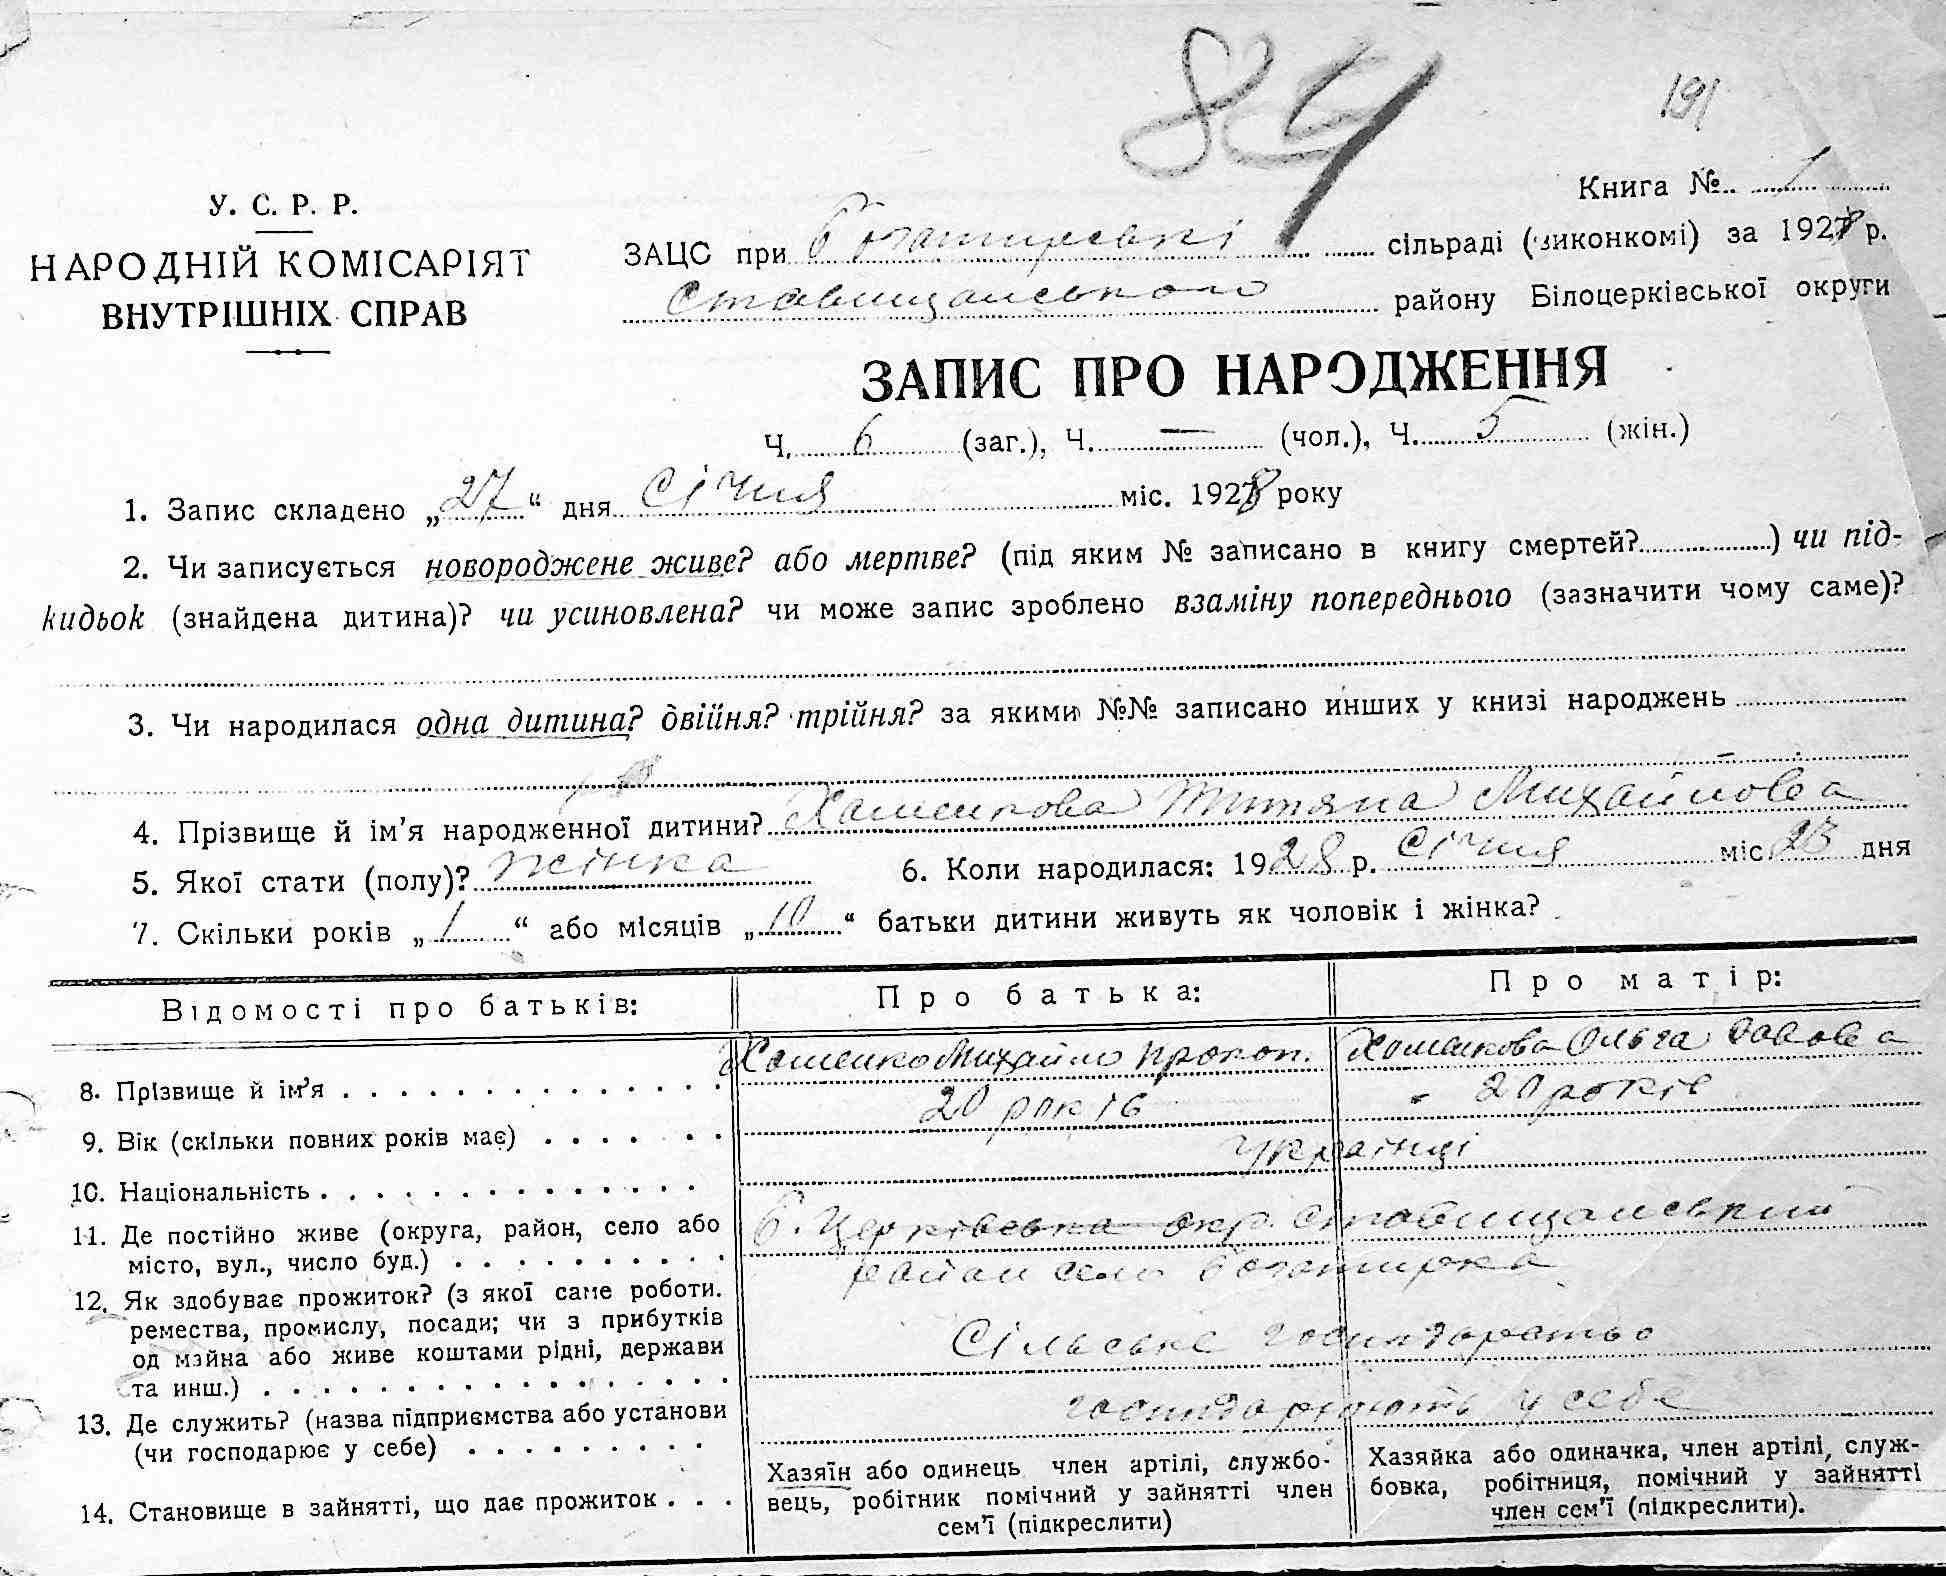 84
191
Книга №.. 1
У. С. Р. Р.
НАРОДНІЙ КОМІСАРІЯТ
ВНУТРІШНІХ СПРАВ
ЗАЦС при Богатирські сільраді (виконкомі) за 1928 р.
Ставищанського району Білоцерківської округи
ЗАПИС ПРО НАРОДЖЕННЯ
Ч. 6 (заг.), Ч. — (чол.), Ч. 5 (жін.)
1. Запис складено „27“ дня Січня міс. 1928 року
2. Чи записується новороджене живе? або мертве? (під яким № записано в книгу смертей?..........) чи під-
кидьок (знайдена дитина)? чи усиновлена? чи може запис зроблено взаміну попереднього (зазначити чому саме)?
3. Чи народилася одна дитина? двійня? трійня? за якими №№ записано инших у книзі народжень
4. Прізвище й ім’я народженної дитини? Хоменкова Титяна Михайлова
5. Якої стати (полу)? жінка 6. Коли народилася: 1928 р. Січня міс 23 дня
7. Скільки років „1“ або місяців „10“ батьки дитини живуть як чоловік і жінка?
Відомості про батьків: Про батька: Про матір:
8. Прізвище й ім’я Хоменко Михайло Прокоп. Хоменкова Ольга Савова
9. Вік (скільки повних років має) 20 років 20 років
10. Національність Українці
11. Де постійно живе (округа, район, село або Б. Церківська окр. Ставищанський
місто, вул., число буд.) район село Богатирка
12. Як здобуває прожиток? (з якої саме роботи.
ремества, промислу, посади; чи з прибутків Сільське господарство
од майна або живе коштами рідні, держави
та инш.)
13. Де служить? (назва підприємства або установи господарюють у себе
(чи господарює у себе)
14. Становище в зайнятті, що дає прожиток
Хазяїн або одинець член артілі, службо-
вець, робітник помічний у зайнятті член
сем’ї (підкреслити)
Хазяйка або одиначка, член артілі, служ-
бовка, робітниця, помічний у зайнятті
член сем’ї (підкреслити).